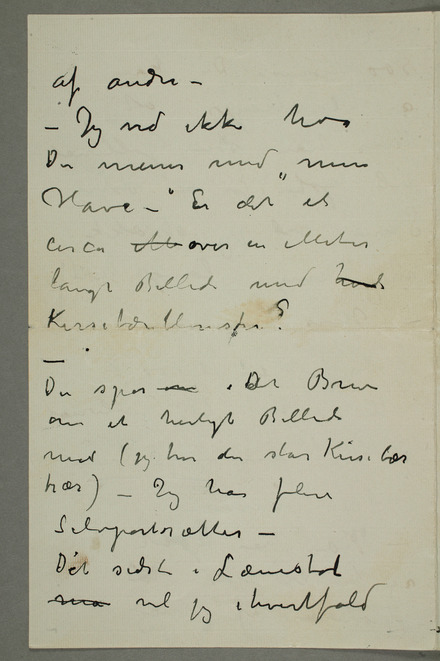 af andre –
– Jeg ved ikke hva
De mener med „min
Have –" Er det et
cirka over en Meter
langt Billede med
Kirsebærblomster?
–
De spør i Det Brev
om et herligt Billede
med (jeg tror der står Kirsebær
trær) – Jeg har flere
Selvportrætter –
Det sidste i Lænestol
vil jeg ihvertfald